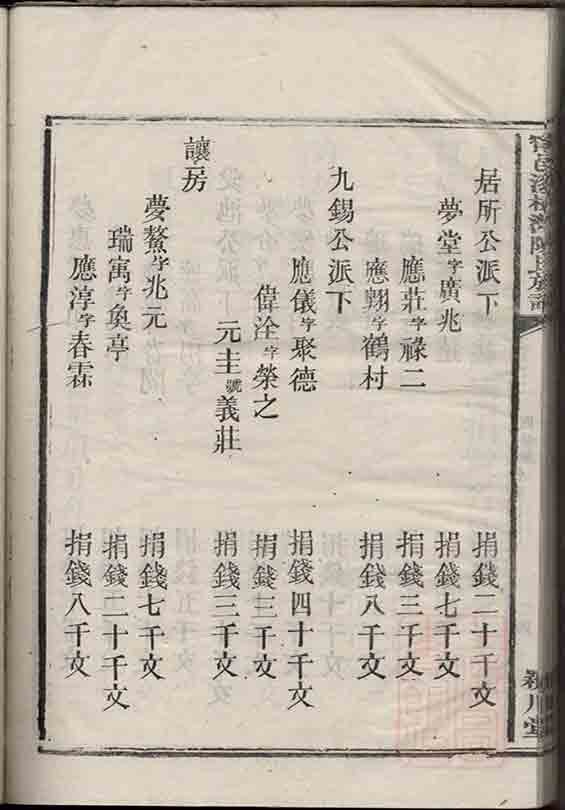 居所公派下 捐錢二十千文
夢堂字廣兆 捐錢七千文
應莊字祿二 捐錢三千文
應翔字鶴村 捐錢八千文
九錫公派下
應儀字聚德 捐錢四十千文
偉洤字榮之 捐錢三千文
元圭號義莊 捐錢三千文
讓房
夢鰲字兆元 捐錢七千文
瑞寓字奐亭 捐錢二十千文
應淳字春霖 捐錢八千文